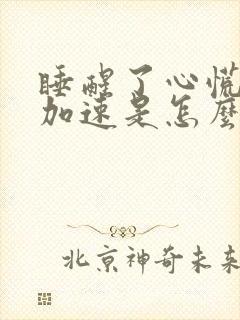 睡醒了心慌
加速是怎麽
北京神奇未来